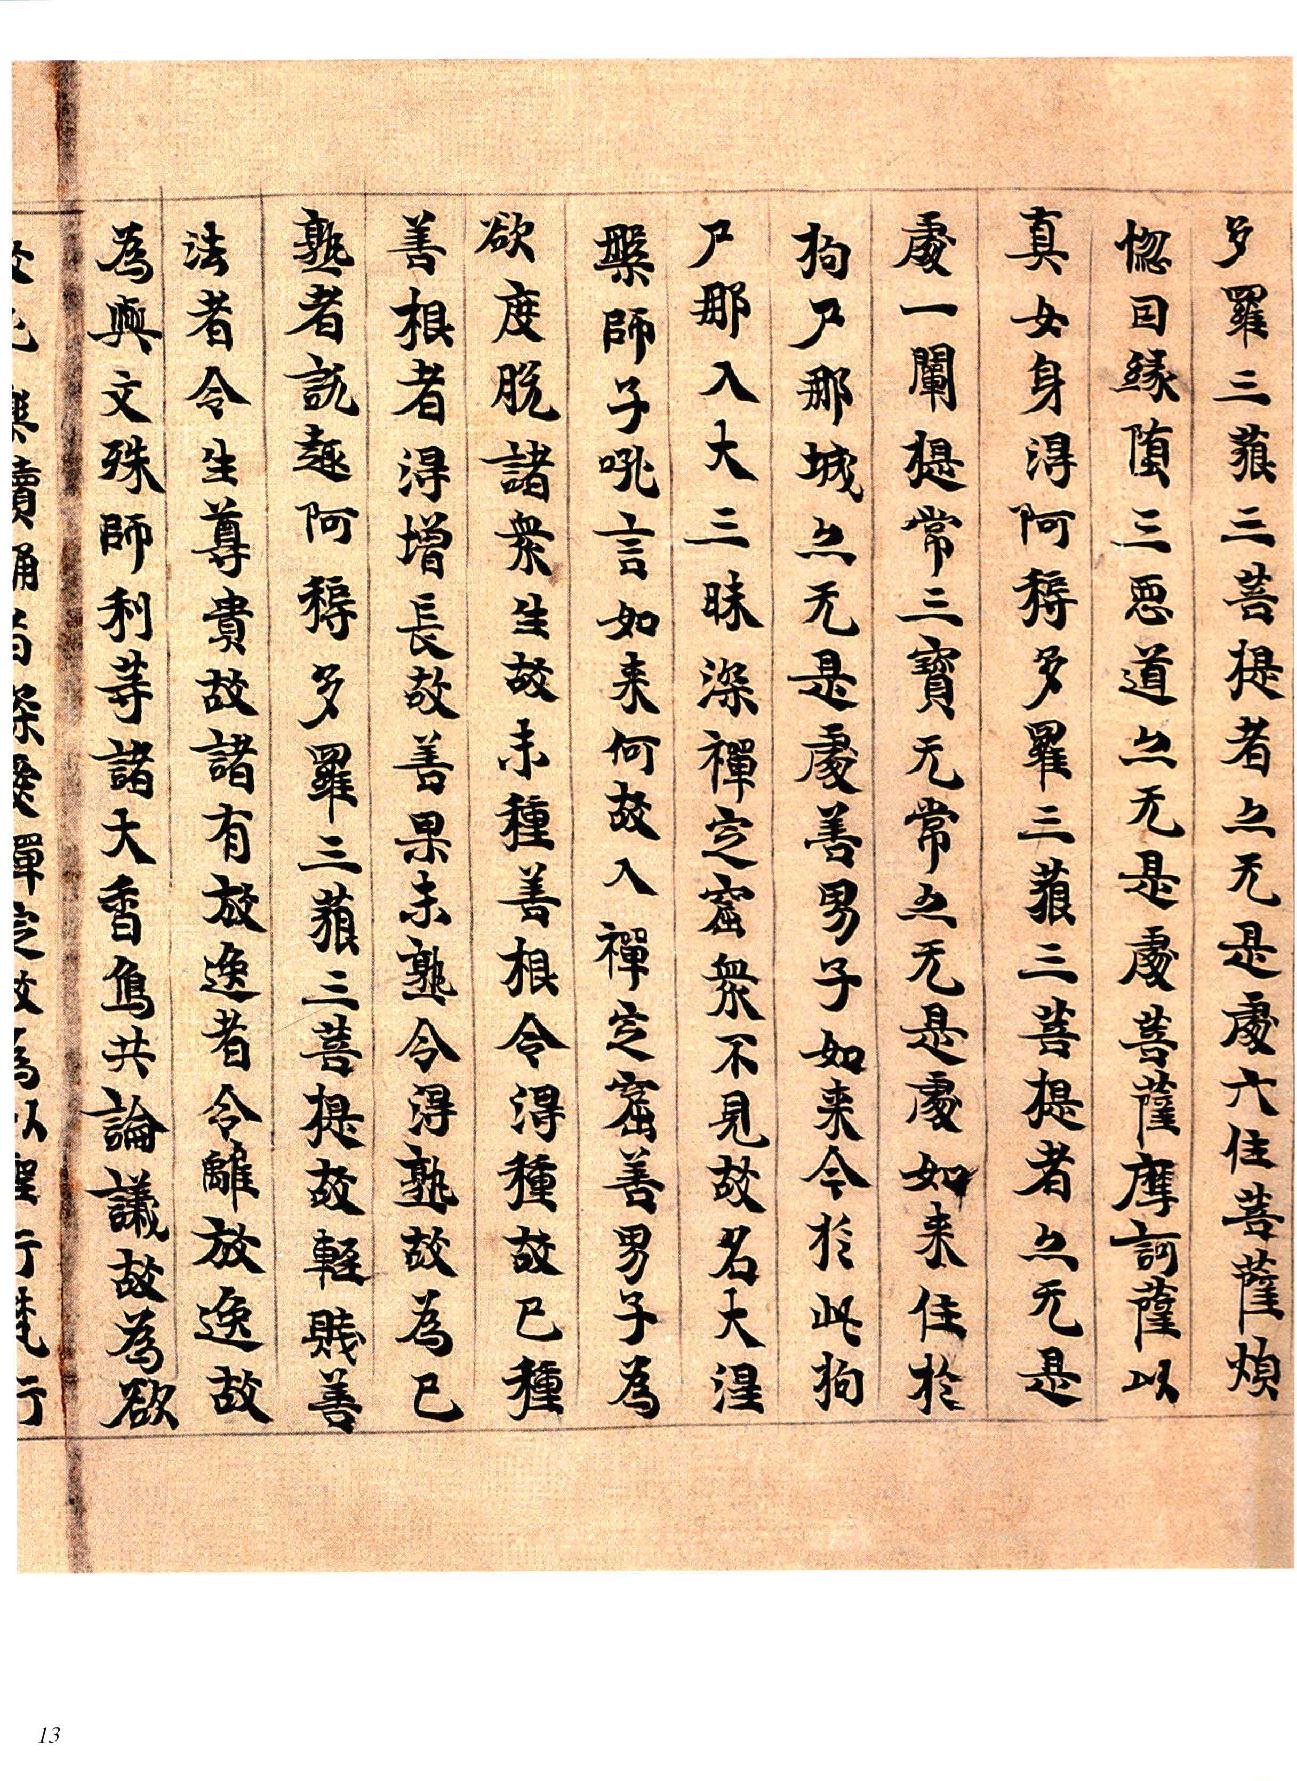 多羅三藐三菩提者亦无是處六住菩薩煩
惚因緣墮三惡道亦无是處菩薩摩訶薩以
真女身得阿耨多羅三藐三菩提者亦无是
處一闡提常三寶无常亦无是處如来住於
拘尸那城亦无是處善男子如来今於此拘
尸那入大三昧深禪定窟衆不見故名大涅
槃師子吼言如来何故入禪定窟善男子為
欲度脫諸衆生故未種善根令得種故已種
善根者得增長故善果未熟令得熟故為已
熟者說趣阿耨多羅三藐三菩提故輕賤善
法者令生尊貴故諸有放逸者令離放逸故
為與文殊師利等諸大香鳥共論議故為欲
讀誦者深愛禪定故為以聖行梵行
13